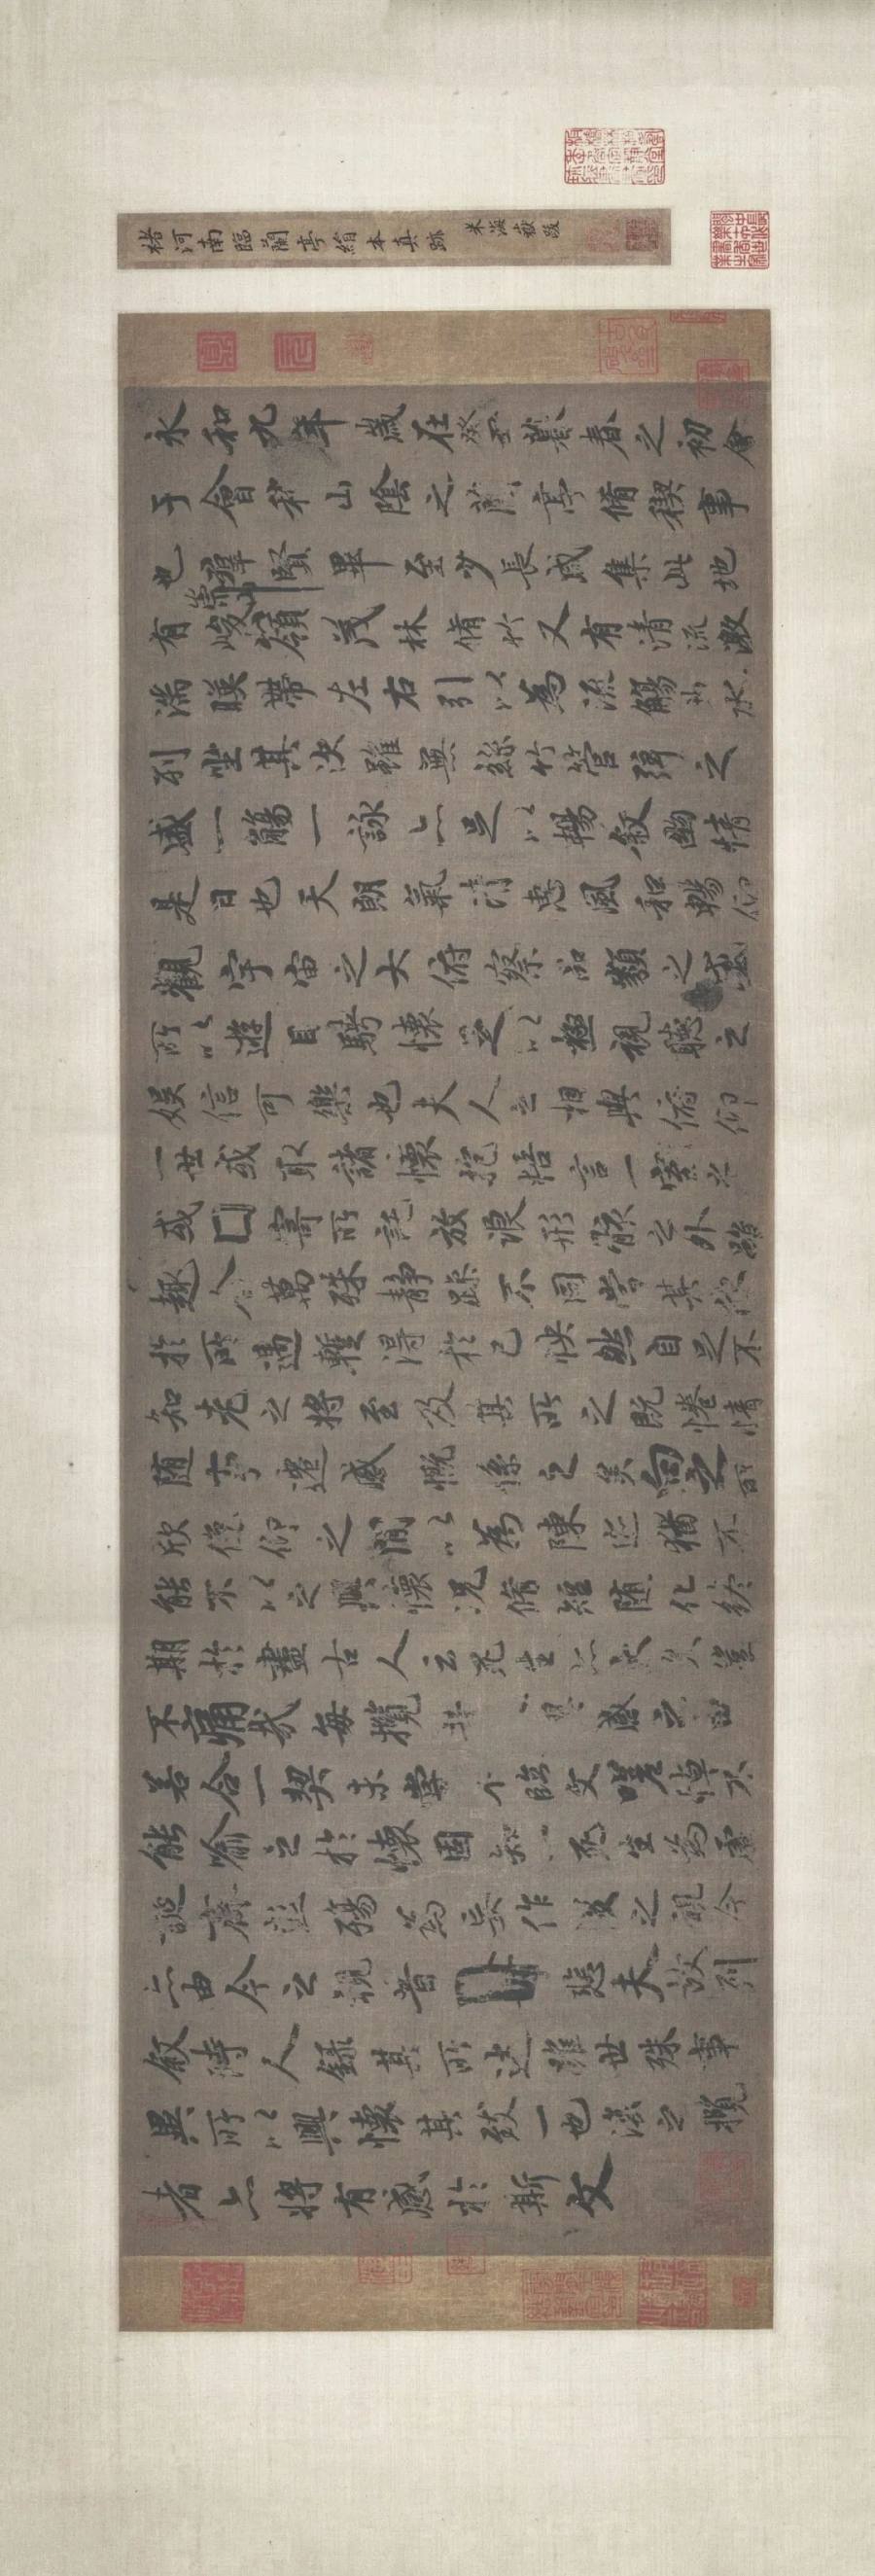 褚河南臨蘭亭絹本真跡 米海嶽跋
永和九年歲在癸丑暮春之初會
于會稽山陰之蘭亭脩稧事
也群賢畢至少長咸集此地
有崇山峻領茂林脩竹又有清流激
湍暎帶左右引以為流觴曲水
列坐其次雖無絲竹管弦之
盛一觴一詠亦足以暢敘幽情
是日也天朗氣清惠風和暢仰
觀宇宙之大俯察品類之盛
所以遊目騁懷足以極視聽之
娛信可樂也夫人之相與俯仰
一世或取諸懷抱悟言一室之
或寄所託放浪形骸之外雖
趣舍萬殊静躁不同當其欣
於所遇蹔得於己怏然自足不
知老之將至及其所之既惓情
隨事遷感慨係之矣向之所
欣俛仰之閒以為陳迹猶不
能不以之興懷況脩短隨化終
期於盡古人云死生亦大矣豈
不痛哉每攬昔興感之由
若合一契未嘗不臨文嗟悼不
能喻之於懷固知死生為虛
誕齊彭殤為妄作後之視今
亦由今之視昔悲夫故列
敘時人錄其所述雖世殊事
異所以興懷其致一也後之攬
者亦將有感於斯文